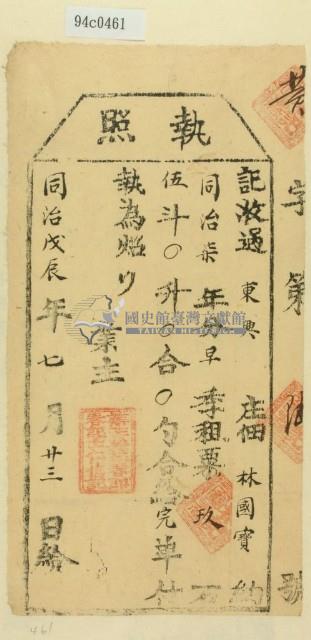 94c0461
黄字第
號
執照
記收過東興庄佃林國寶納
同治柒年分早季租粟玖石
伍斗〇升 合〇勺合給完单付
執為炤
業主
同治戊辰年七月廿三日給
國史館臺灣文獻館
TAIWAN HISTORICA
461